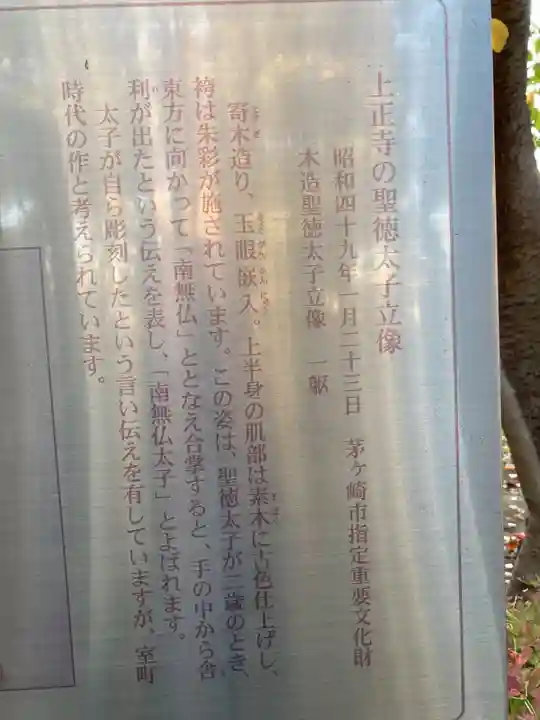 上正寺の聖徳太子立像
昭和四十九年一月二十三日　茅ヶ崎市指定重要文化財
木造聖徳太子立像　一躯
寄木造り、玉眼嵌入。上半身の肌部は素木に古色仕上げし、
袴は朱彩が施されています。この姿は、聖徳太子が二歳のとき、
東方に向かって「南無仏」ととなえ合掌すると、手の中から舎
利が出たという伝えを表し、「南無仏太子」とよばれます。
太子が自ら彫刻したという言い伝えを有していますが、室町
時代の作と考えられています。